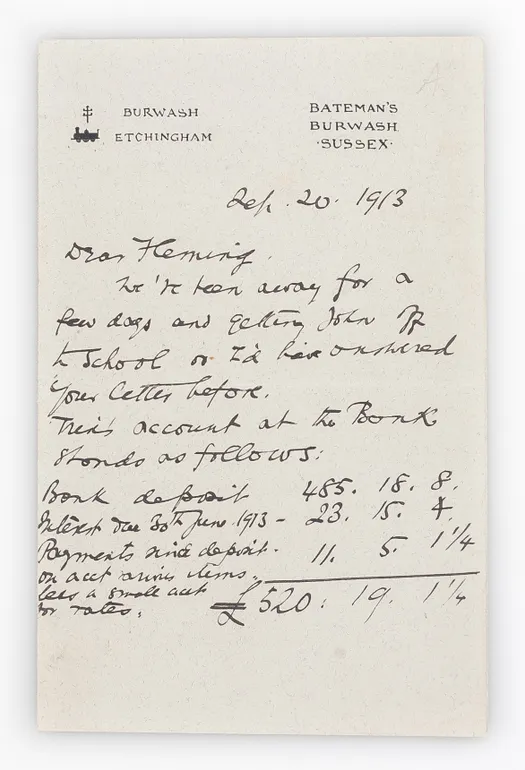 BURWASH
ETCHINGHAM
BATEMAN'S
BURWASH
·SUSSEX·
Sep. 20. 1913
Dear Fleming.
We've been away for a
few days and getting John off
to School or I'd have answered
your letter before.
account at the Bank
stands as follows:
Bank deposit 485. 18. 8.
Interest due 30th June 1913 - 23. 15. 4.
Payments since deposit. 11. 5. 1 1/4
on acct various items.
less a small acct
for rates.
£520: 19. 1 1/4